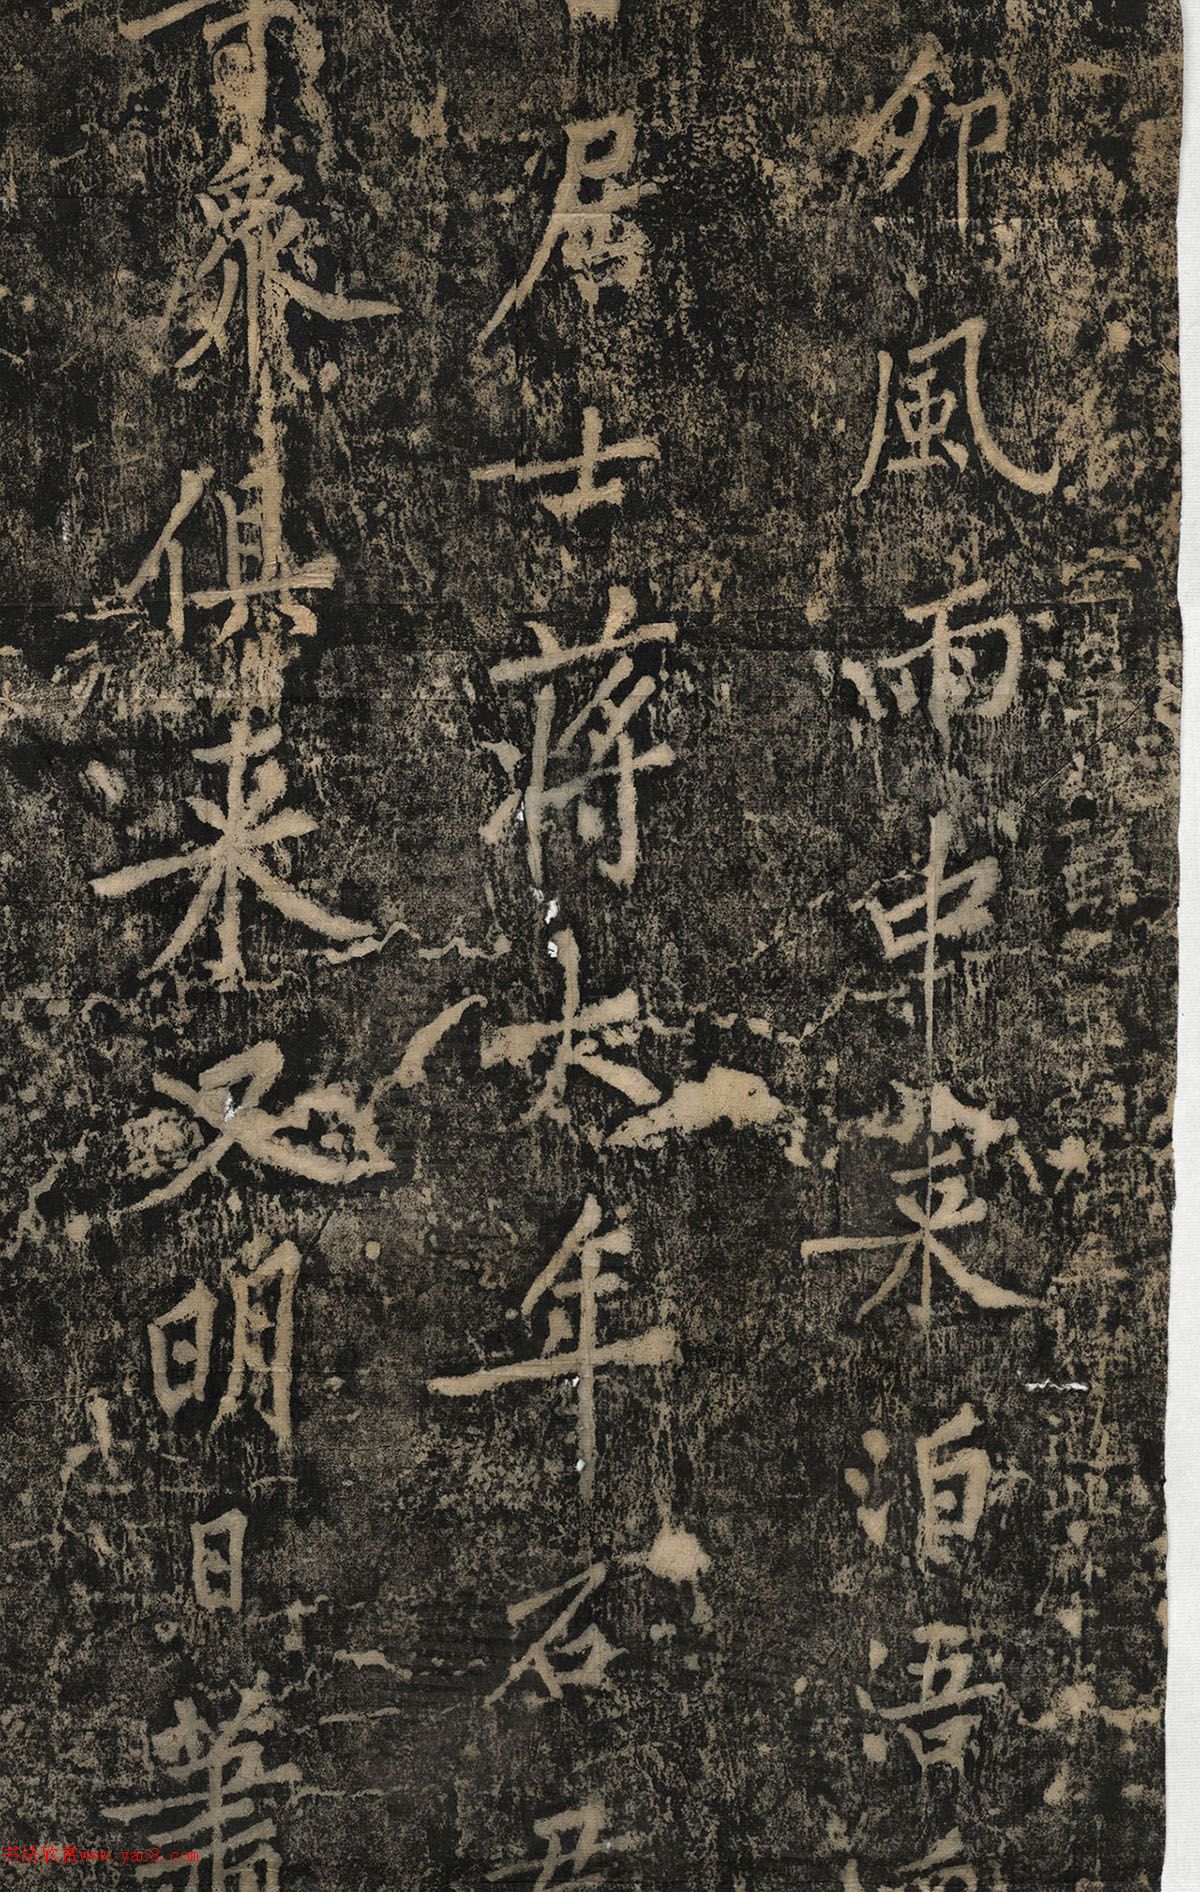 卯風雨中来泊浯
居士蒋大年石
衆俱来又明日蕭
书法欣赏www.yac8.com